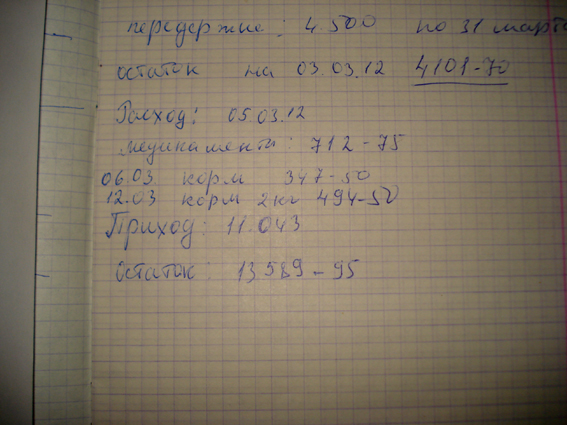 передержке: 4.500 по 31 марта
остаток на 03.03.12 4101-70
Расход: 05.03.12
медикаменты: 712-75
06.03 корм 347-50
12.03 корм 2кг 494-50
Приход: 11.043
Остаток: 13589-95